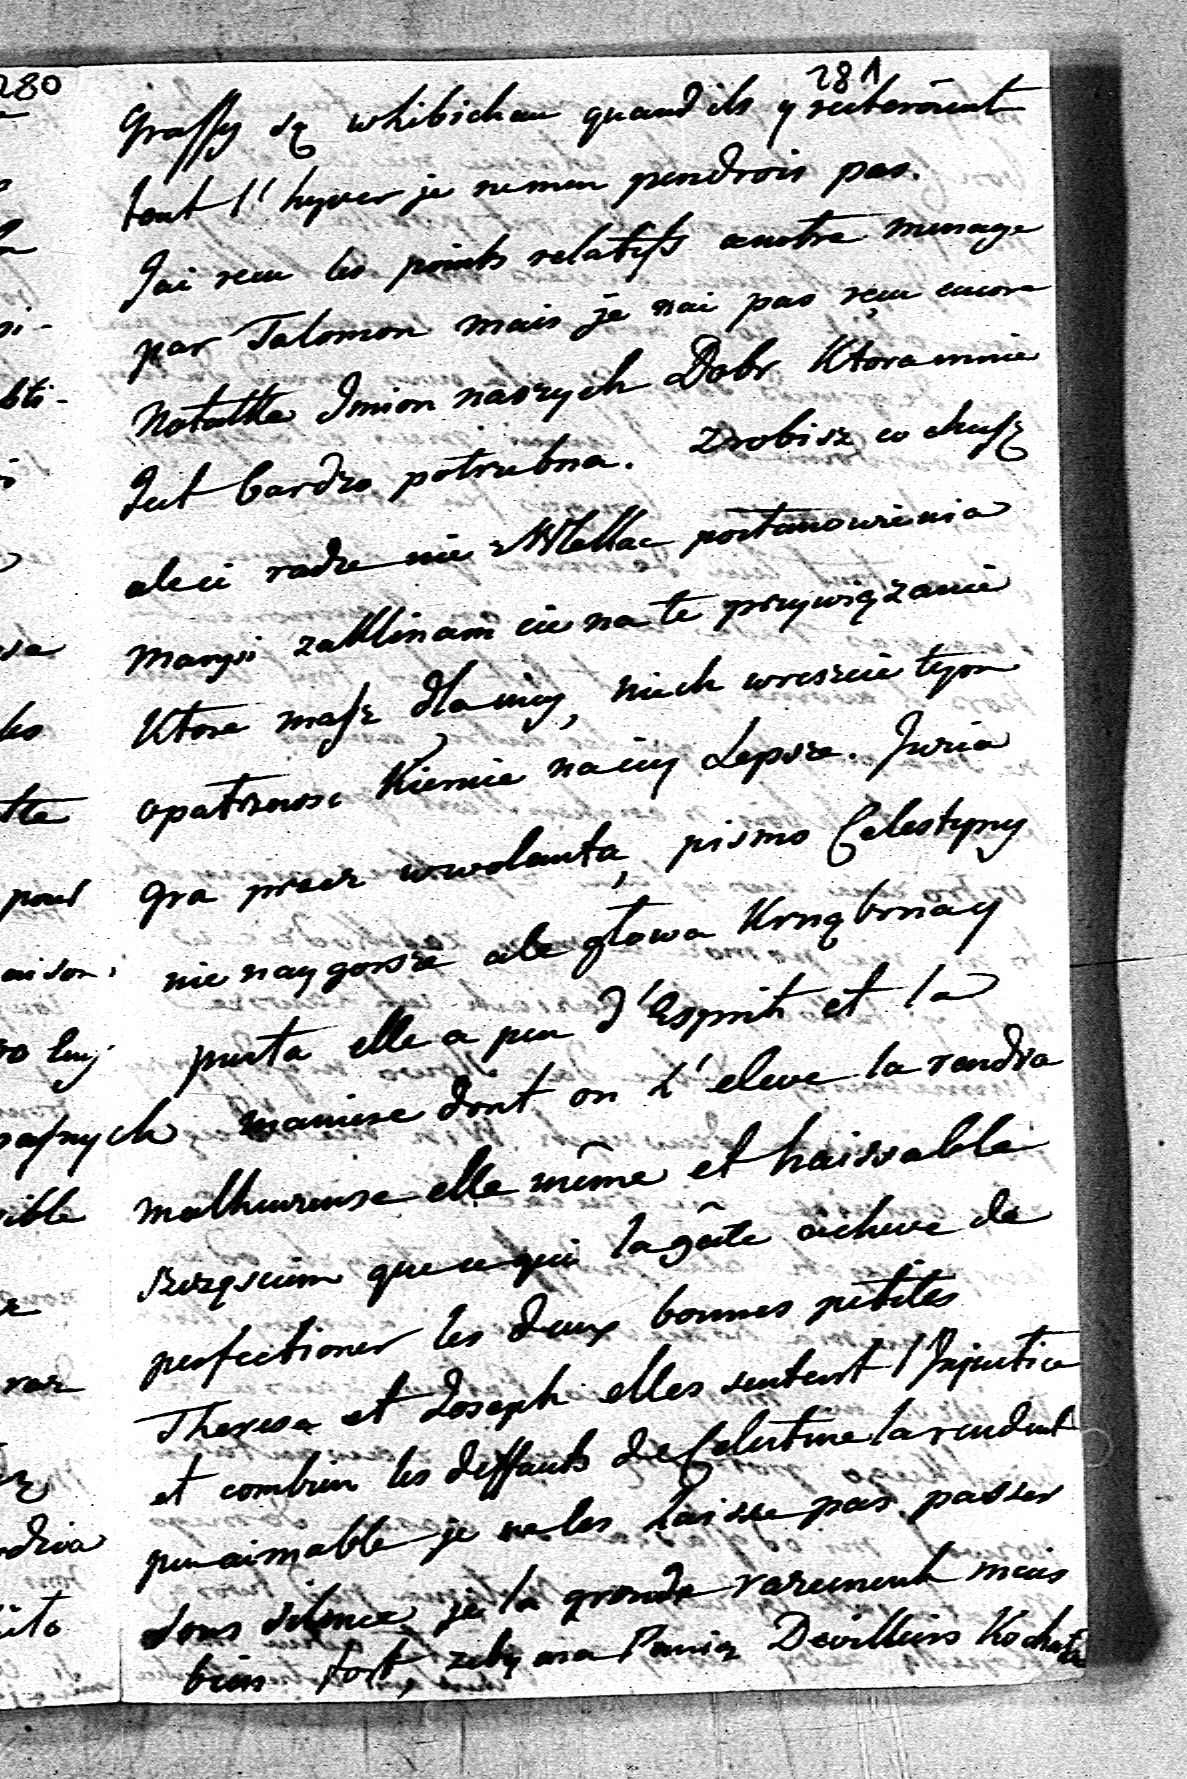 280
281
Grassy są whibichau quand ils y resteroient
tout l'hyver je nemen pendrois pas.
Jai recu les points relatifs a notre menage
par Salomon mais je nai pas reçu encore
Notatke Imion naszych Dobr Ktora mnie
Jest bardzo potrzebna. Zrobisz co chcesz
ale ci radze nie postanowienia
Marysi zaklinam cie na te przywiązanie
Ktore masz dla niey, niech wreszcie tym
opatrznosc Kiernie na iey Lepsze. Juzia
gra precz wwolanta, pismo Celestyny
nie naygorsze ale głowa Krnąbrna y
pusta elle a peu d'Esprit et la
maniere dont on L'eleve la rendra
malheureuse elle même et haissable
Szczęsciem que ce qui la gâte acheve de
perfectioner les deux bonnes petites
Therese et Joseph elles sentent l'Injustice
et combien les deffauts de Celestine la rendent
peu aimable je ne les Laisse pas passer
sous silence, je la gronde rarement mais
bien fort, zeby ona Panią Devilliers Kochała